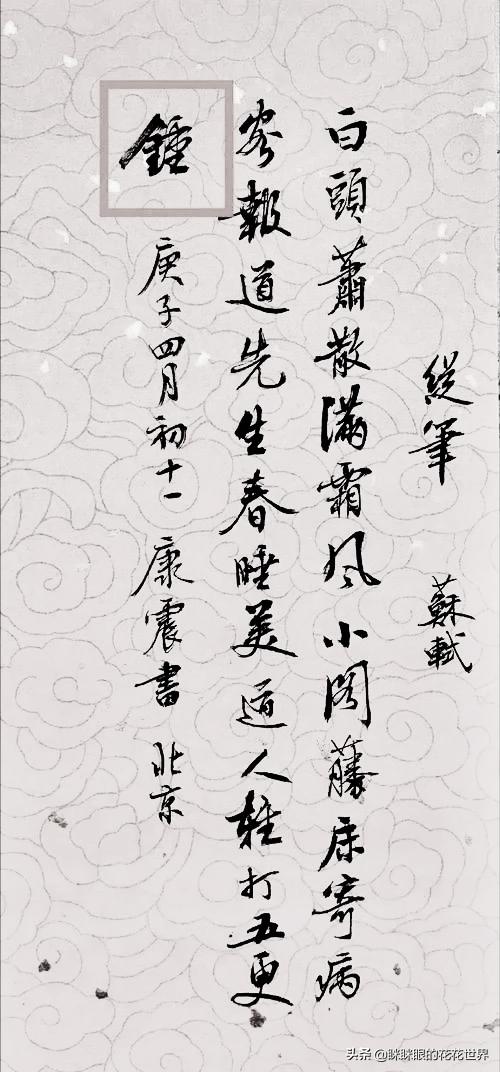 縱筆 蘇軾
白頭蕭散滿霜風小閣藤床寄病
容報道先生春睡美道人輕打五更
鍾 庚子四月初十一 康震書 北京
头条 @眯眯眼的花花世界